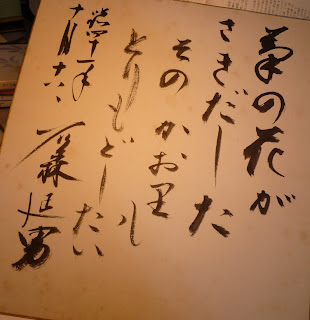 菊の花が
さきだした
そのかお里
とりもどしたい
四十一年
十月十六
藤延男